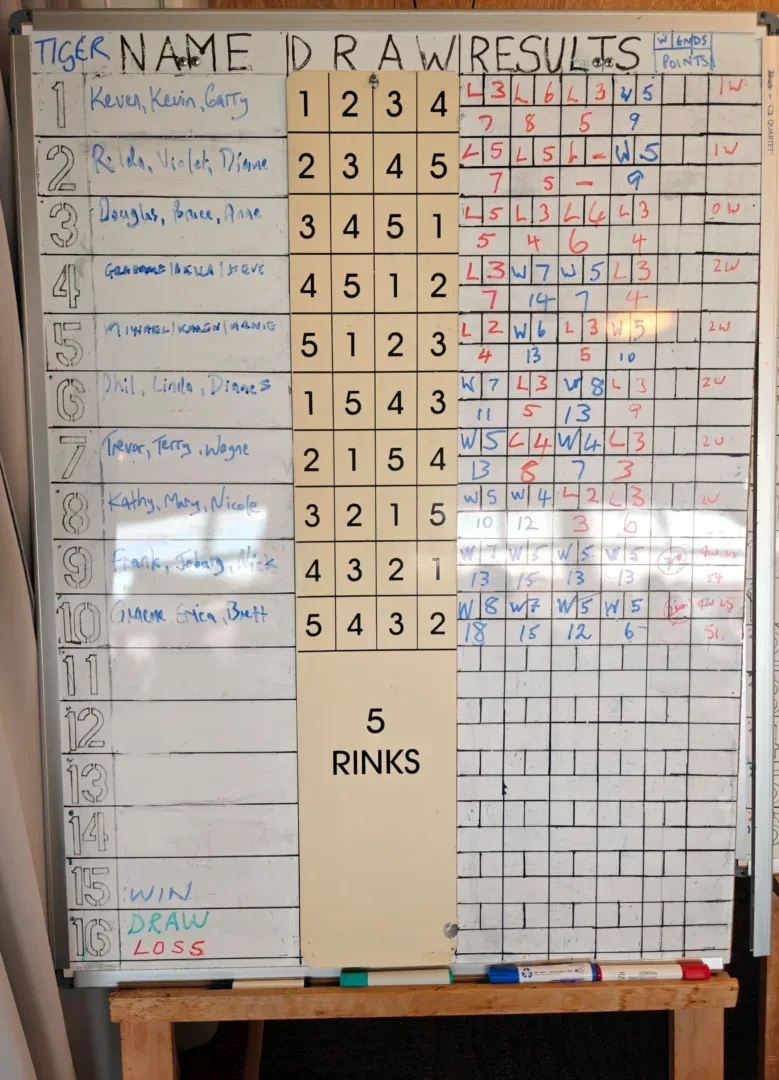 TIGER NAME DRAW RESULTS W ENDS
POINTS
1 Keven, Kevin, Garry 1 2 3 4 L 3 L 6 L 3 W 5 1W
7 8 5 9
2 Violet, Dianne 2 3 4 5 L 5 L 5 L - W 5 1W
7 5 - 9
3 Douglas, Bruce, Anne 3 4 5 1 L 5 L 3 L 4 L 3 0W
5 4 6 4
4 STEVE 4 5 1 2 L 3 W 7 W 5 L 3 2W
7 14 7 4
5 5 1 2 3 L 2 W 6 L 3 W 5 2W
4 13 5 10
6 Phil, Linda, 1 5 4 3 W 7 L 3 W 8 L 3 2W
11 5 13 9
7 Trevor, Terry, Wayne 2 1 5 4 W 5 L 4 W 4 L 3 2W
13 8 7 3
8 Kathy, Mary, Nicole 3 2 1 5 W 5 W 4 L 2 L 3 2W
10 12 3 6
9 Frank, Nick 4 3 2 1 W 7 W 5 W 5 W 5
13 15 13 13 54
10 Graeme Erica, Brett 5 4 3 2 W 8 W 7 W 5 W 5
18 15 12 6 51
11
12
5
RINKS
13
14
15 WIN
16 DRAW
LOSS